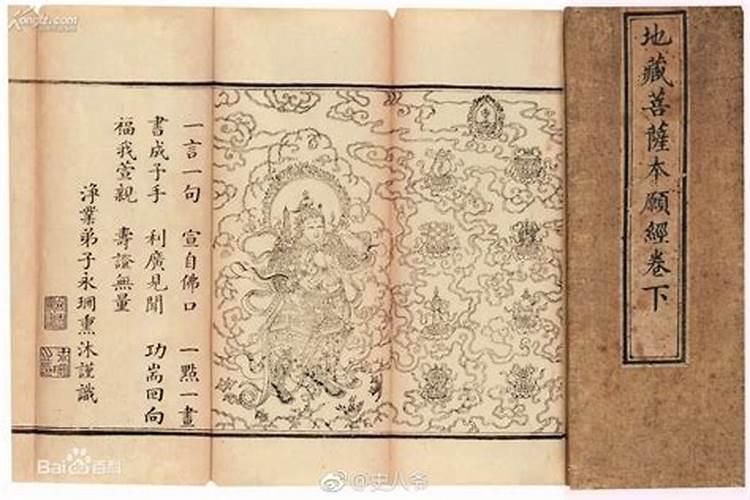 地藏菩薩本願經卷下
一言一句 宣自佛口 一點一畫
書成予手 利廣見聞 功嵩回向
福我萱親 壽證無量
淨業弟子永 熏沐謹識
Kongfz.com
Bai 百科
@史人爷